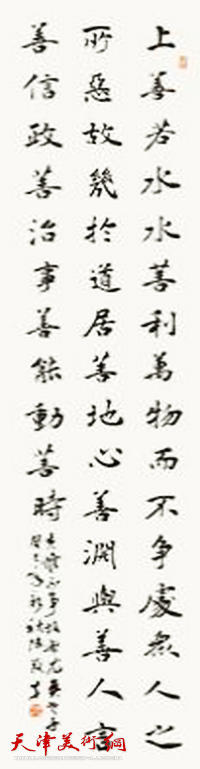 上善若水水善利萬物而不争處衆人之
所惡故幾於道居善地心善淵與善人言
善信政善治事善能動善時
夫唯不争故無尤
天津美术网